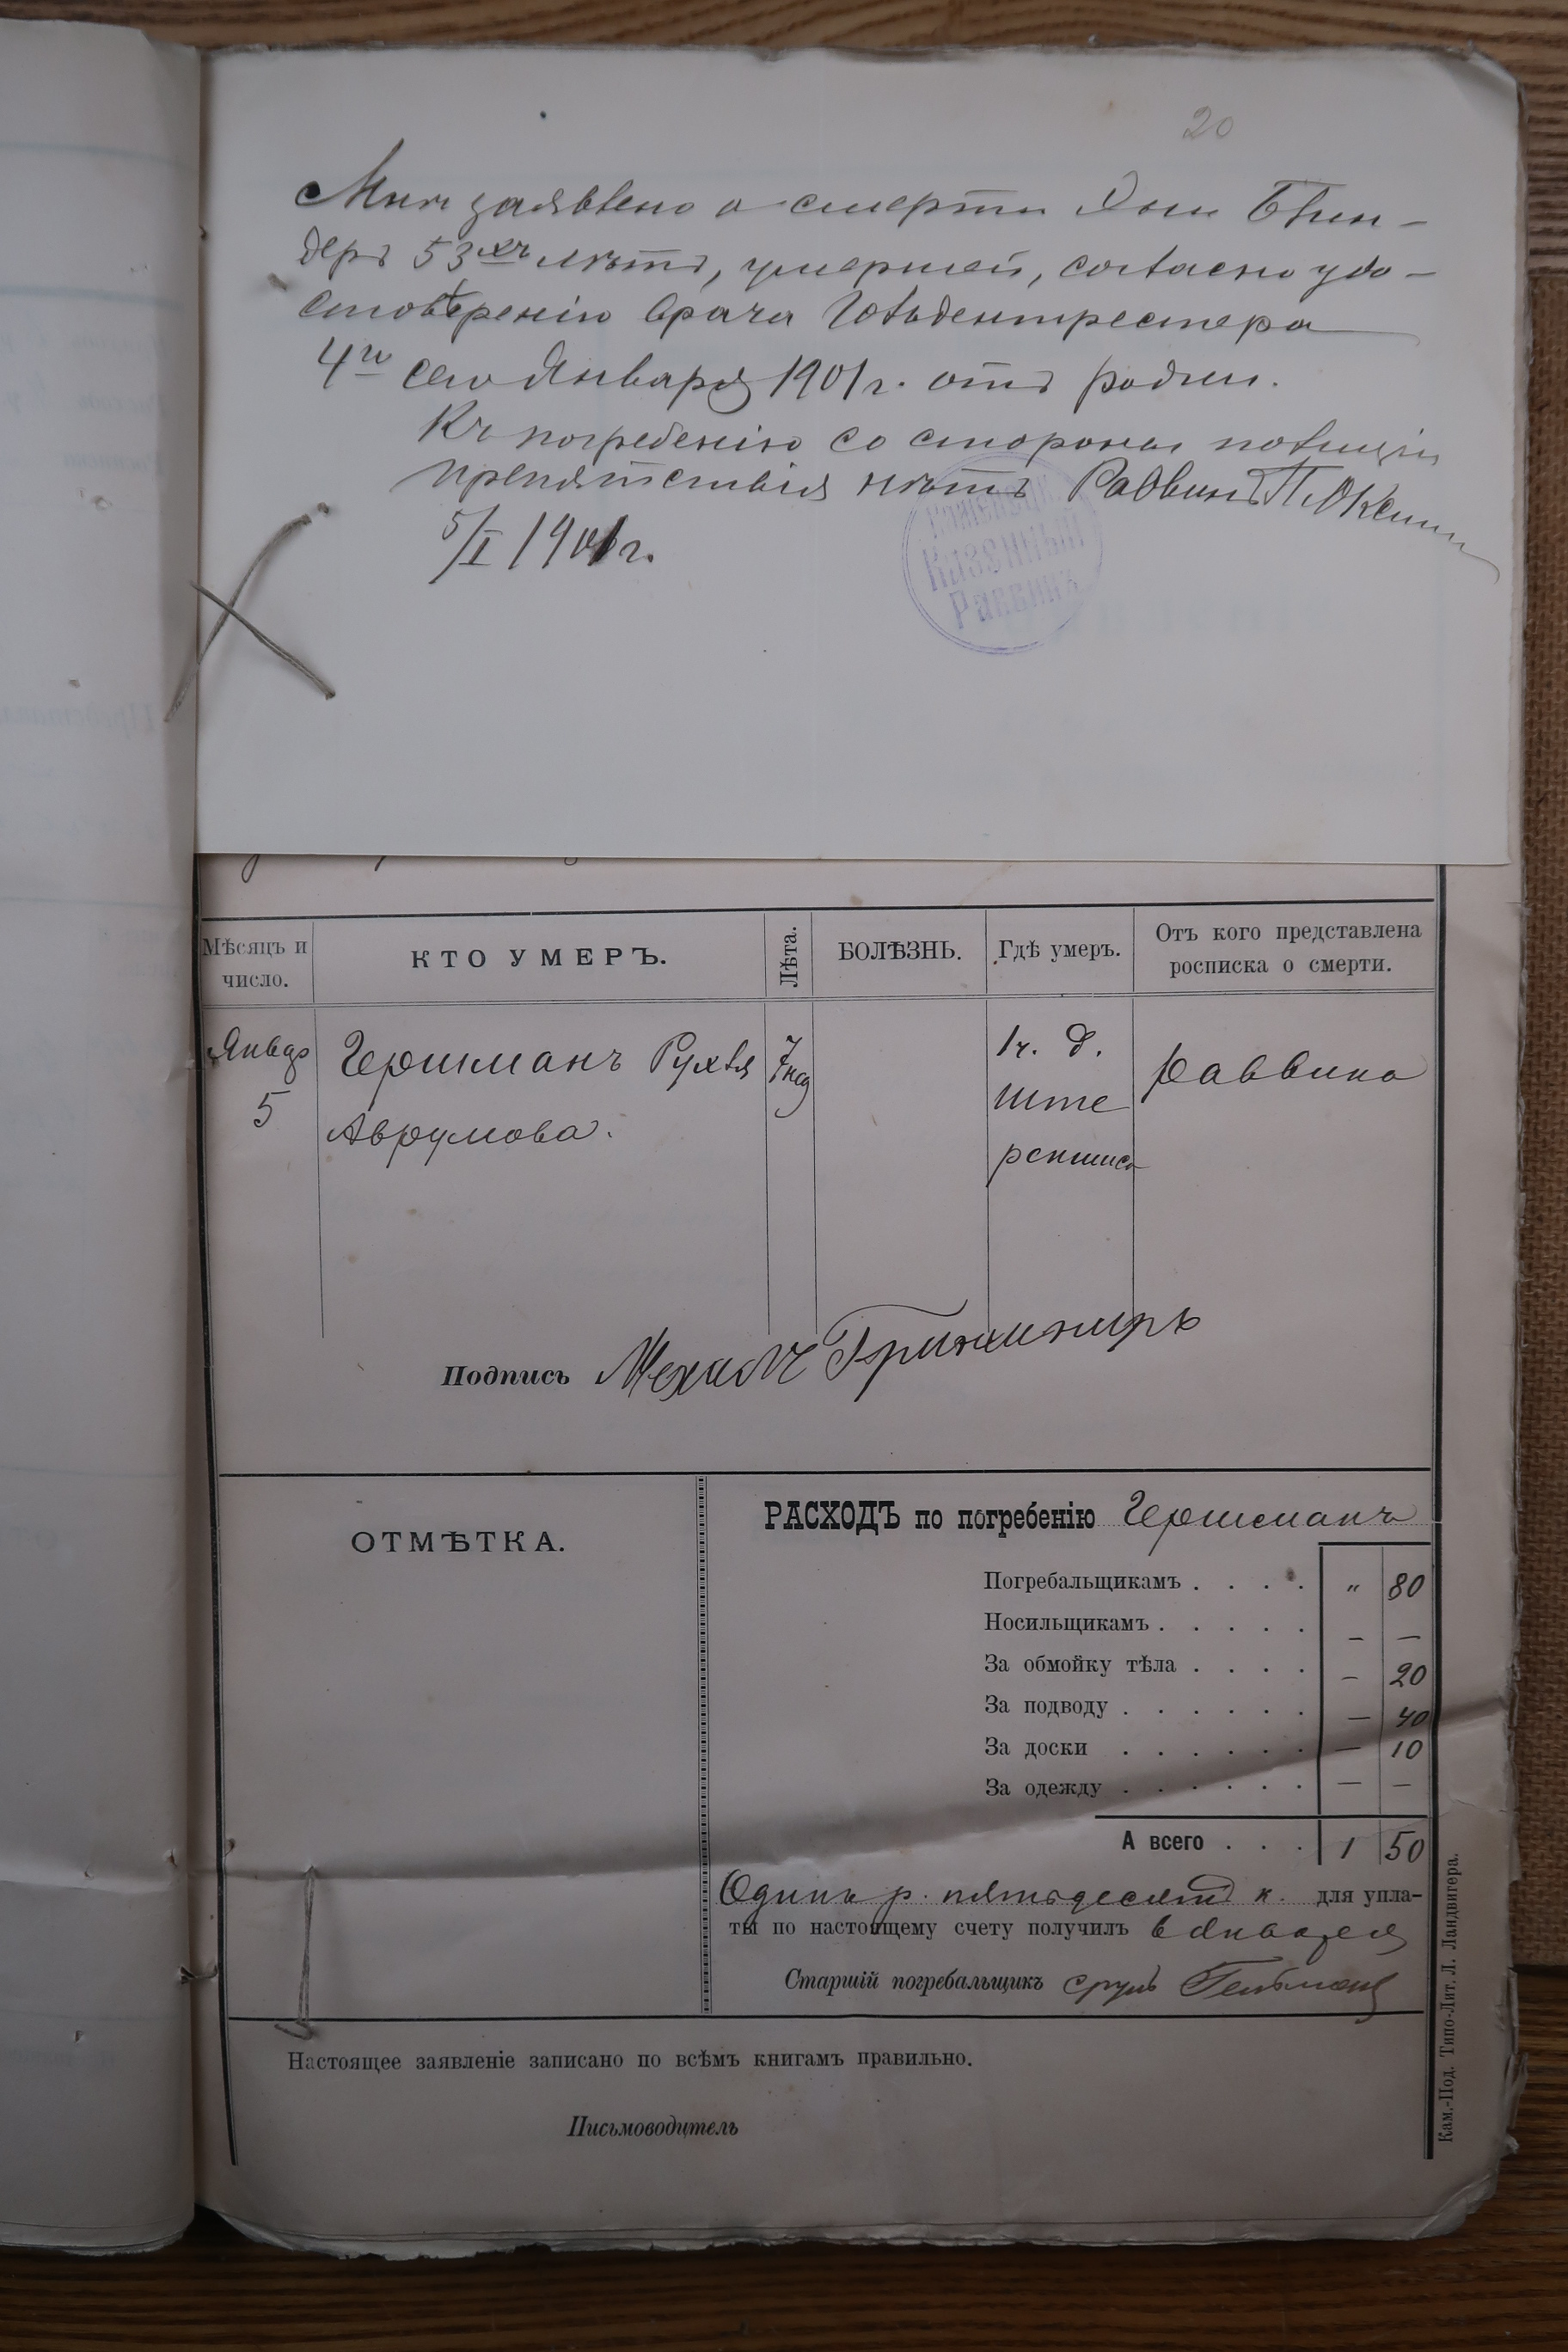 20
Мнѣ заявлено о смерти Хаи Блин-
деръ 53хъ лѣтъ, умершей, согласно удо-
стовѣренію врача Гольдентрестера
4го сего Января 1901 г. отъ родии.
Къ погребенію со стороны полиціи
препятствія нѣтъ Раввинъ
5/I 1901 г.
Казенный
Раввинъ
Мѣсяцъ и число.
КТО УМЕРЪ.
Лѣта.
БОЛѢЗНЬ.
Гдѣ умеръ.
Отъ кого представлена росписка о смерти.
Январ 5
Гершманъ Рухля
Аврумова.
7 нед
1 ч. д.
Ште
раввина
Подпись Мехилъ
ОТМѢТКА.
РАСХОДЪ по погребенію Гершманъ
Погребальщикамъ . . . . " 80
Носильщикамъ . . . . . – —
За обмойку тѣла . . . . – 20
За подводу . . . . . . — 40
За доски . . . . . . — 10
За одежду . . . . . . — —
А всего . . . 1 50
Одинъ р. пятьдесятъ к. для упла-
ты по настоящему счету получилъ 6 Января
Старшій погребальщикъ Срулъ Гельманъ
Настоящее заявленіе записано по всѣмъ книгамъ правильно.
Письмоводитель
Кам.-Под. Типо-Лит. Л. Ландвигера.